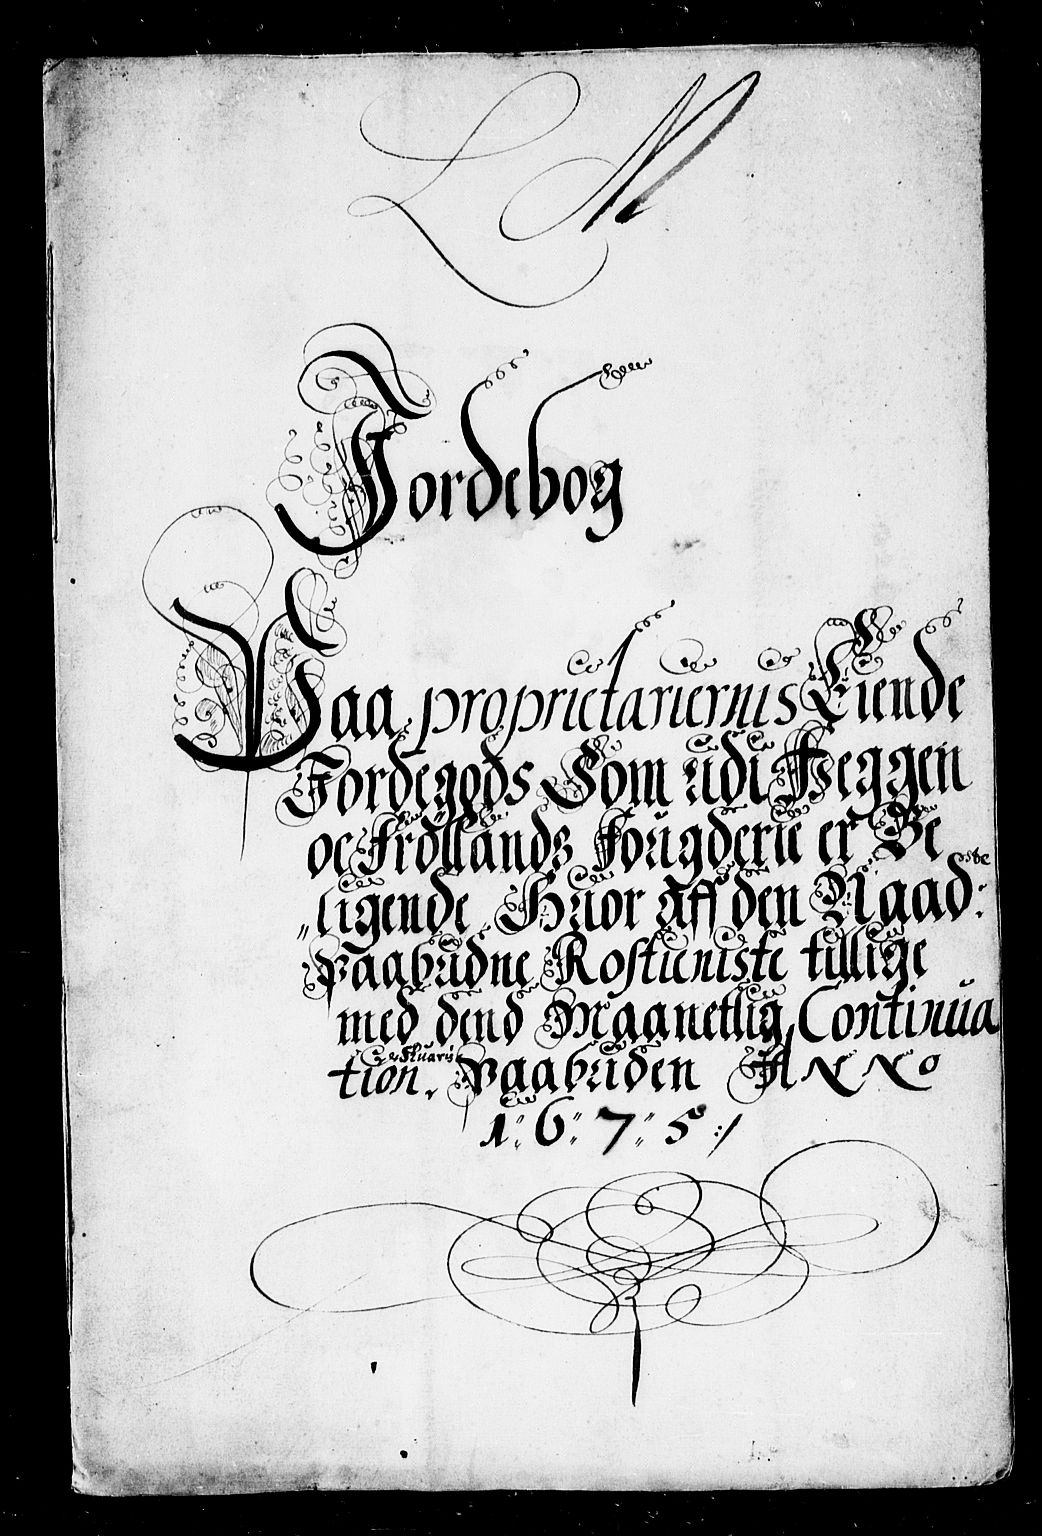 L M
Jordebog
Paa proprietariernis Eiende
Jordegods Som udi Heggen
oc Frölands Fougderie er Be
ligende Huor aff den Naad:ste
Paabudne Rostieniste tillige
med dend Maanetlig Continua
tion Paabuden Anno
1:6:7:5:/